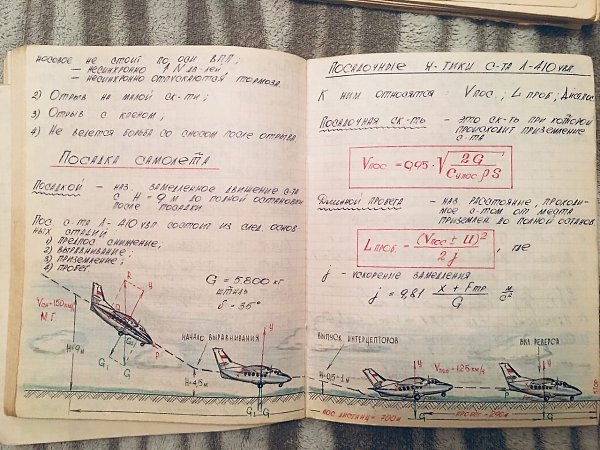 носовое не стоит по оси ВПП;
– несинхронно ↑ N дв-лей
– несинхронно отпускаются тормоза.
2) Отрыв на малой ск-ти;
3) Отрыв с креном;
4) Не ведется борьба со сносом после отрыва.
Посадка самолета
Посадкой – наз. замедленное движение с-та
с H = 9 м до полной остановки
после посадки.
Пос. с-та Л-410 увп состоит из след. основ
ных стадий
1) предпос. снижение;
2) выравнивание;
3) приземление;
4) пробег
G = 5.800 кг
штиль
δ = 35°
Vсн = 150 км/ч
М.Г.
R
Y
Q
P
G₁
G
H = 9 м
начало выравнивания
H = 4,5 м
Y
G₁
G
Посадочные х-тики с-та Л-410 увп.
К ним относятся: Vпос.; L проб.;
Посадочная ск-ть – это ск-ть при которой
происходит приземление
с-та
Vпос = 0,95 · √ 2G / Cупос ρ S
Длиной пробега – наз. расстояние, проходи-
мое с-том от места
приземлен. до полной останов.
L проб. = (Vпос ± U)² / 2j , где
j – ускорение замедления
j = 9,81 X + Fтр / G м/с²
выпуск интерцепторов
H = 0,5-1 м
Y
Vпос = 125 км/ч
G
вкл. реверса
Y
P
G
пос. дистанц. = 700 м
пробег = 290 м